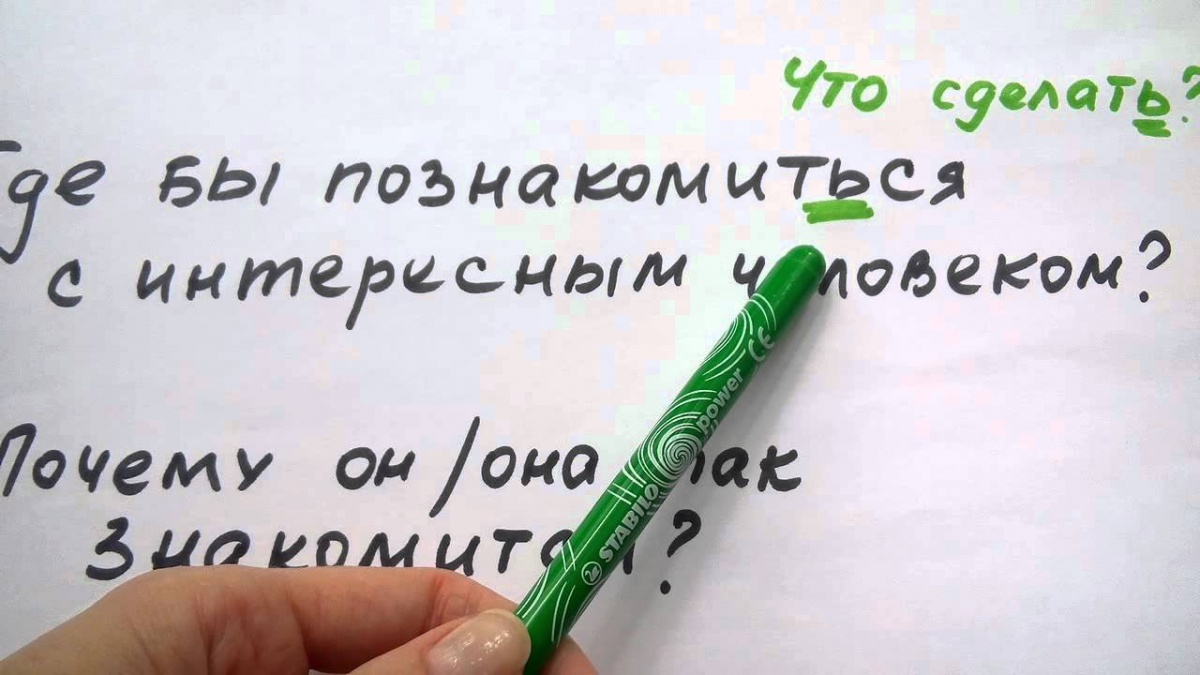 Что сделать?
Где бы познакомиться
с интересным человеком?
Почему он/она так
знакомится?
STABILO power CE